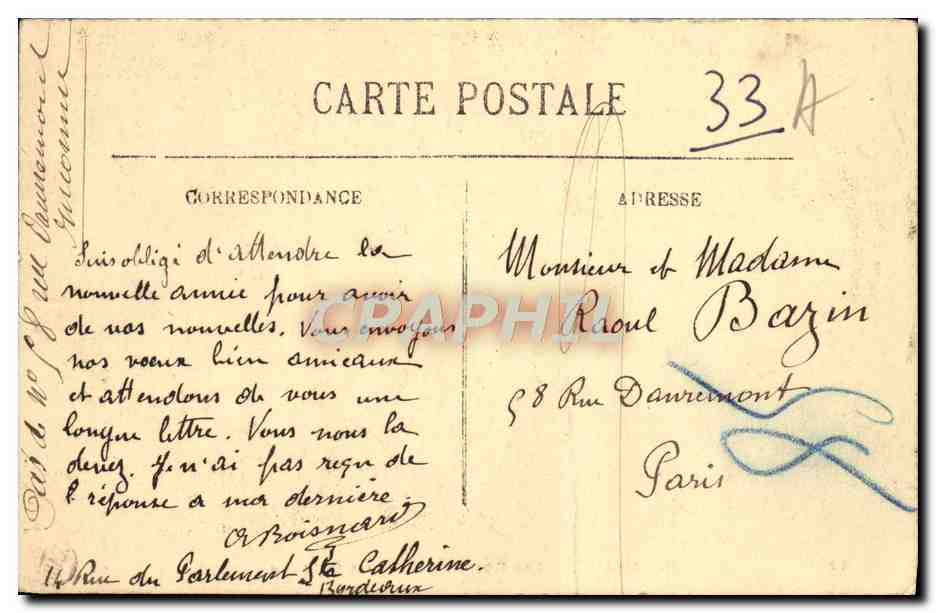 CARTE POSTALE
33 A
CORRESPONDANCE
Suis obligé d'attendre la
nouvelle année pour avoir
de vos nouvelles. Vous envoyons
nos voeux bien amicaux
et attendons de vous une
longue lettre. Vous nous la
devez. Je n'ai pas reçu de
réponse a ma dernière.
A Boisnard
14 Rue du Parlement Ste Catherine.
Bordeaux
ADRESSE
Monsieur et Madame
Raoul Bazin
58 Rue Dauremont
Paris
Pas de No 58 rue Damrémont
Inconnu
CPAPHIL